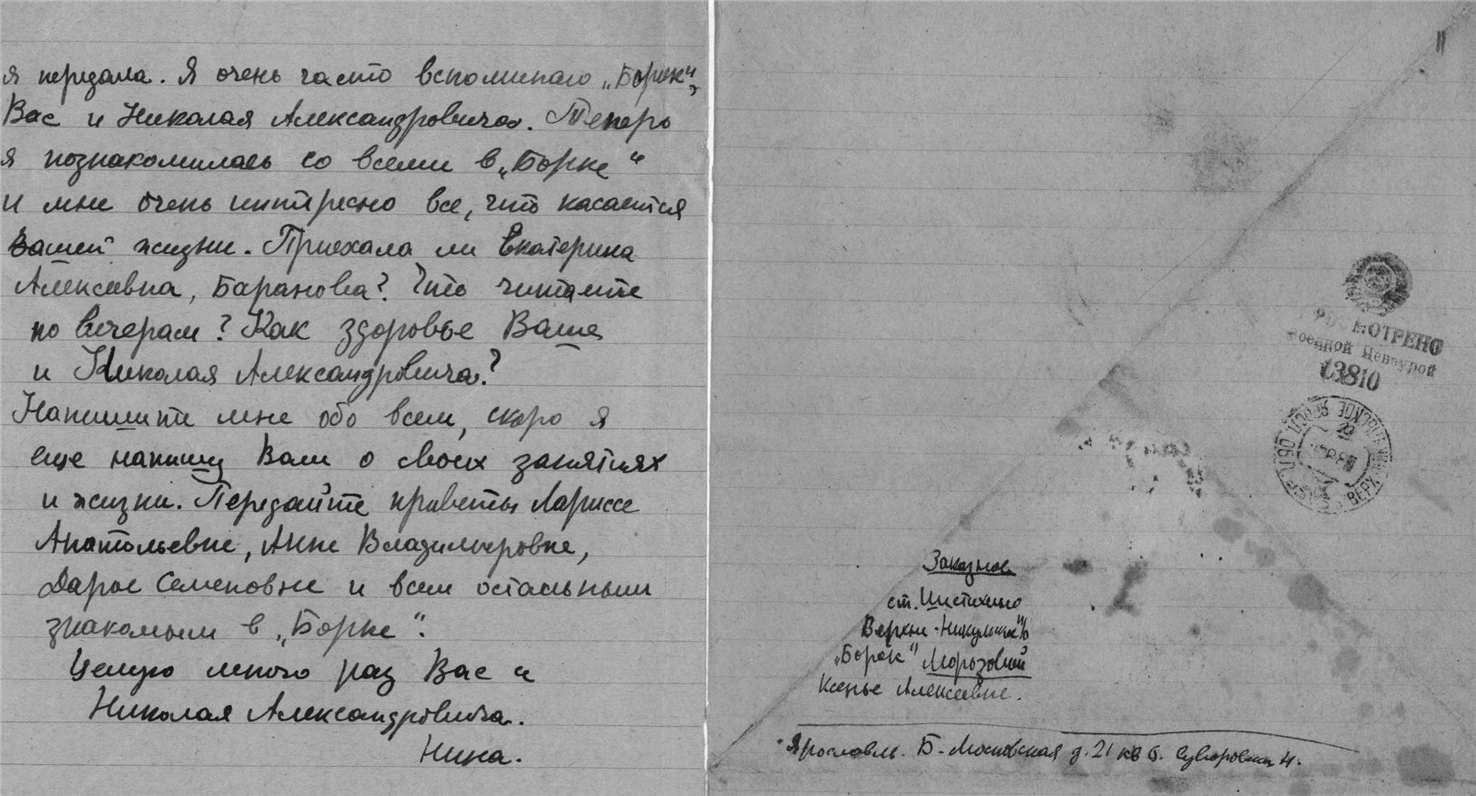 я передала. Я очень часто вспоминаю „Борок“,
Вас и Николая Александровича. Теперь
я познакомилась со всеми в „Борке“
и мне очень интересно все, что касается
Вашей жизни. Приехала ли Екатерина
Алексеевна, Баранова? Что читаете
по вечерам? Как здоровье Ваше
и Николая Александровича?
Напишите мне обо всем, скоро я
еще напишу Вам о своих занятиях
и жизни. Передайте приветы Лариссе
Анатольевне, Анне Владимировне,
Дарье Семеновне и всем остальным
знакомым в „Борке“.
Целую много раз Вас и
Николая Александровича.
Нина.
11
ПРОСМОТРЕНО
Военной Цензурой
13810
22
ВЕРХ
Заказное
ст. Шестихино
Верхне-Никульское п/о
„Борок“ Морозовой
Ксенье Алексеевне.
Ярославль. Б-Московская д. 21 кв 6.